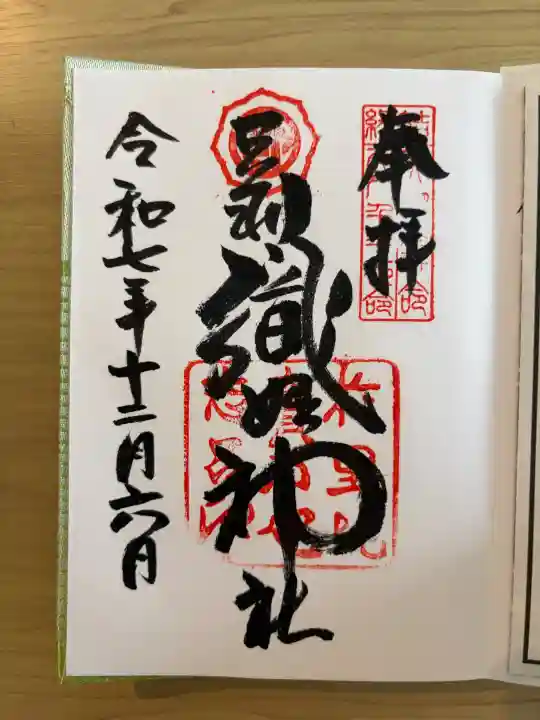 奉拝
足利織姫神社
令和七年十二月六日